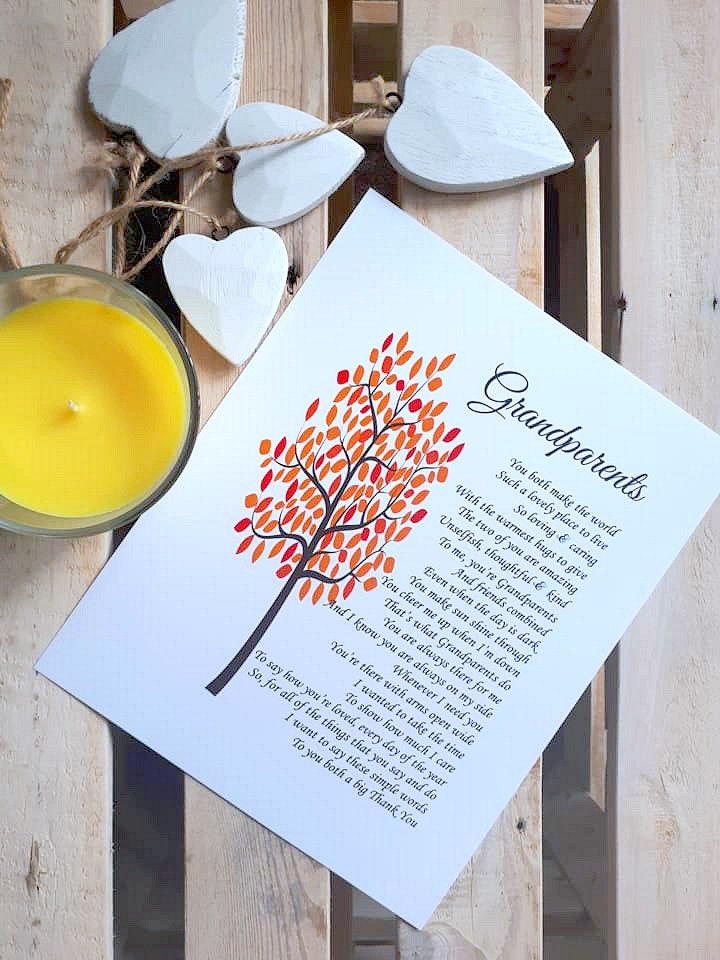 Grandparents
You both make the world
Such a lovely place to live
So loving & caring
With the warmest hugs to give
The two of you are amazing
Unselfish, thoughtful & kind
To me, you're Grandparents
And friends combined
Even when the day is dark,
You make sun shine through
You cheer me up when I'm down
That's what Grandparents do
You are always there for me
And I know you are always on my side
Whenever I need you
You're there with arms open wide
I wanted to take the time
To show how much I care
To say how you're loved, every day of the year
So, for all of the things that you say and do
I want to say these simple words
To you both a big Thank You